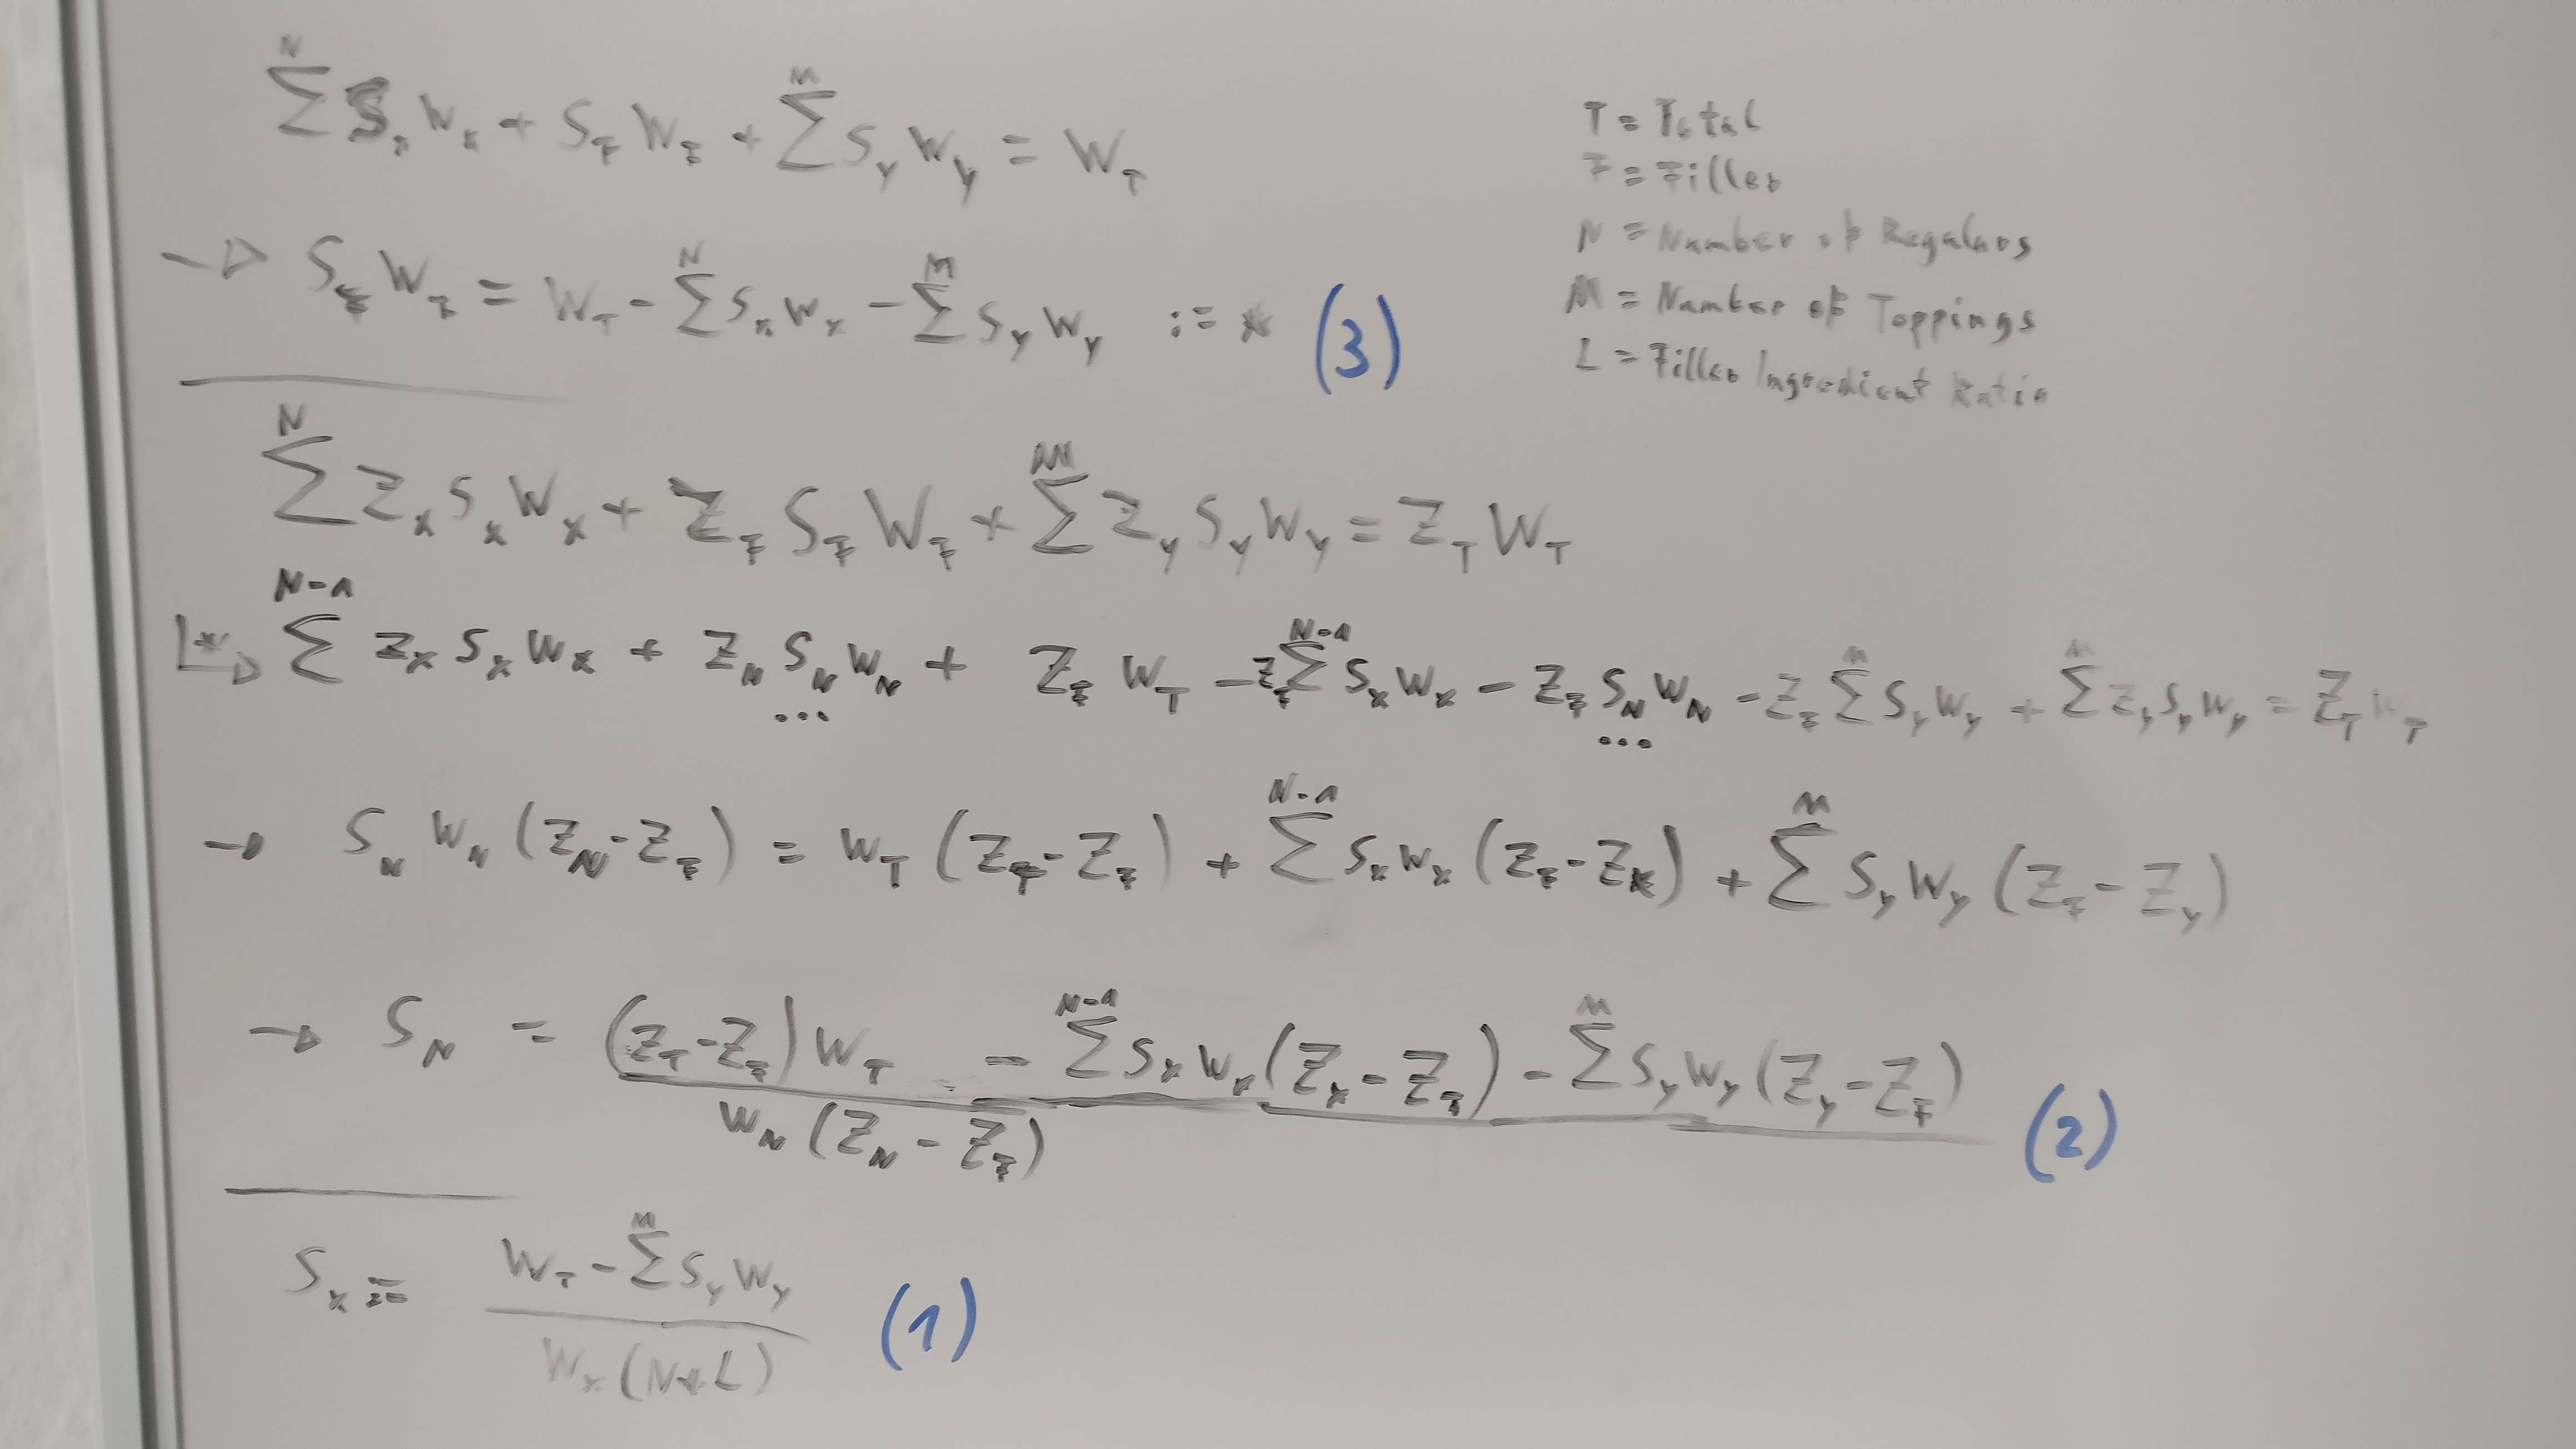 ∑^N S_x W_x + S_F W_F + ∑^M S_y W_y = W_T
→ S_F W_F = W_T - ∑^N S_x W_x - ∑^M S_y W_y := * (3)
T = Total
F = Filler
N = Number of Regulars
M = Number of Toppings
L = Filler Ingredient Ratio
∑^N Z_x S_x W_x + Z_F S_F W_F + ∑^M Z_y S_y W_y = Z_T W_T
↳* ∑^{N-1} Z_x S_x W_x + Z_N S_N W_N + Z_F W_T - Z_F ∑^{N-1} S_x W_x - Z_F S_N W_N - Z_F ∑^M S_y W_y + ∑^M Z_y S_y W_y = Z_T W_T
→ S_N W_N (Z_N - Z_F) = W_T (Z_T - Z_F) + ∑^{N-1} S_x W_x (Z_F - Z_x) + ∑^M S_y W_y (Z_F - Z_y)
→ S_N = (Z_T - Z_F) W_T - ∑^{N-1} S_x W_x (Z_x - Z_F) - ∑^M S_y W_y (Z_y - Z_F) (2)
W_N (Z_N - Z_F)
S_x := W_T - ∑^M S_y W_y (1)
W_x (N+L)